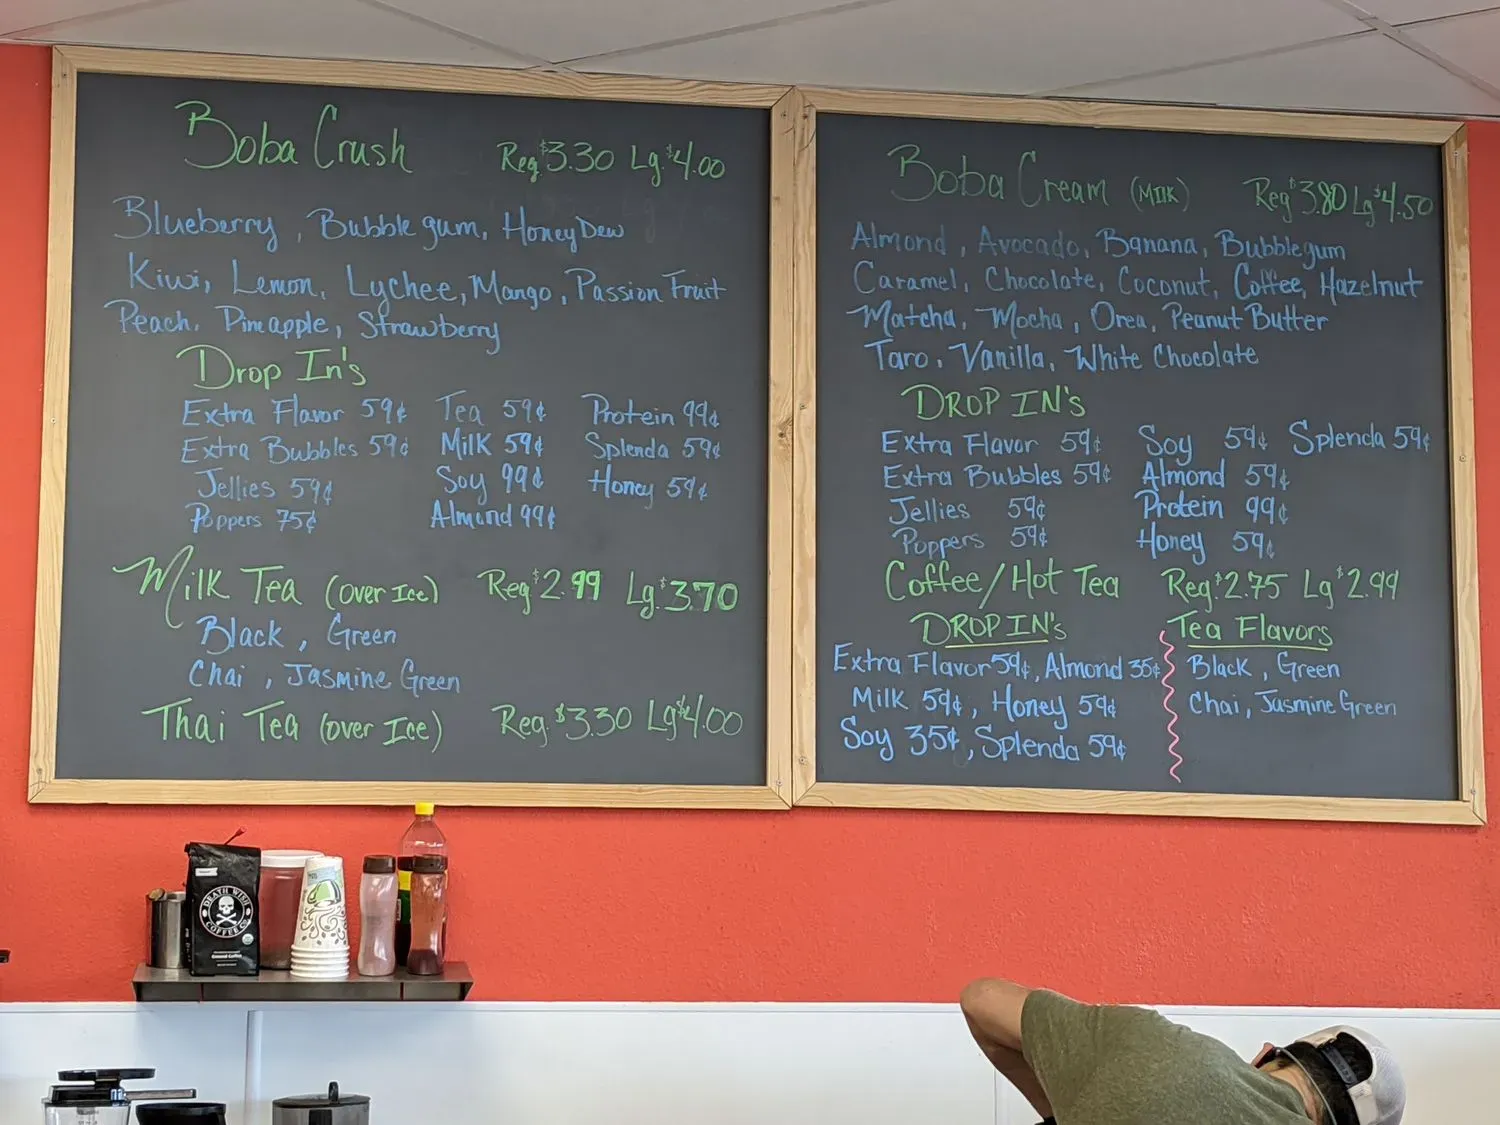 Boba Crush Reg $3.30 Lg. $4.00
Blueberry, Bubble gum, HoneyDew
Kiwi, Lemon, Lychee, Mango, Passion Fruit
Peach, Pineapple, Strawberry
Drop In's
Extra Flavor 59¢ Tea 59¢ Protein 99¢
Extra Bubbles 59¢ Milk 59¢ Splenda 59¢
Jellies 59¢ Soy 99¢ Honey 59¢
Poppers 75¢ Almond 99¢
Milk Tea (over Ice) Reg $2.99 Lg. $3.70
Black, Green
Chai, Jasmine Green
Thai Tea (over Ice) Reg. $3.30 Lg $4.00
Boba Cream (Milk) Reg $3.80 Lg $4.50
Almond, Avocado, Banana, Bubblegum
Caramel, Chocolate, Coconut, Coffee, Hazelnut
Matcha, Mocha, Oreo, Peanut Butter
Taro, Vanilla, White Chocolate
DROP IN's
Extra Flavor 59¢ Soy 59¢ Splenda 59¢
Extra Bubbles 59¢ Almond 59¢
Jellies 59¢ Protein 99¢
Poppers 59¢ Honey 59¢
Coffee/Hot Tea Reg. $2.75 Lg $2.99
DROP IN's Tea Flavors
Extra Flavor 59¢, Almond 35¢ Black, Green
Milk 59¢, Honey 59¢ Chai, Jasmine Green
Soy 35¢, Splenda 59¢
DEATH WISH
COFFEE CO
Ground Coffee